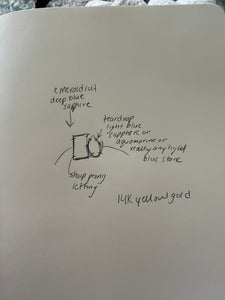 emerald cut
deep blue
sapphire
teardrop
light blue
sapphire or
aquamarine or
really any light
blue stone
sharp prong
setting
14K yellow gold